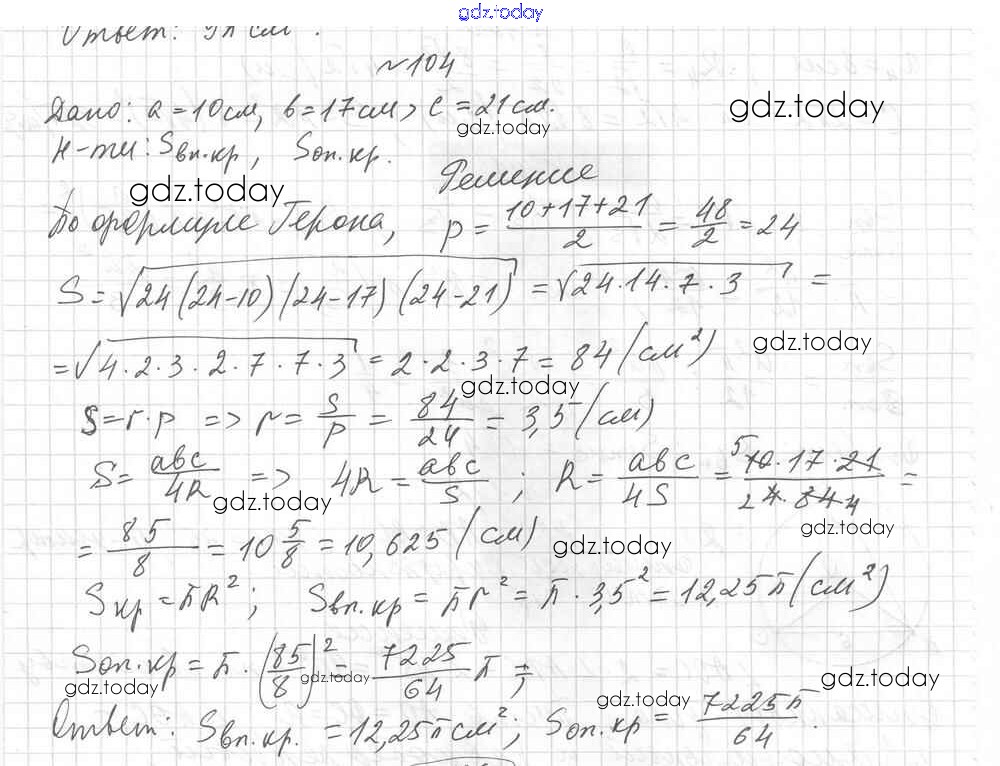 gdz.today
Ответ: 9π см².
№104
Дано: a = 10 см, b = 17 см, c = 21 см.
gdz.today
gdz.today
Н-ти: Sвп.кр, Sоп.кр.
Решение
gdz.today
По формуле Герона, p = (10+17+21)/2 = 48/2 = 24
S = √(24(24-10)(24-17)(24-21)) = √(24·14·7·3) =
= √(4·2·3·2·7·7·3) = 2·2·3·7 = 84 (см²)
gdz.today
gdz.today
S = r·p => r = S/p = 84/24 = 3,5 (см)
S = abc/4R => 4R = abc/S ; R = abc/4S = 5 10·17·21/24·84 4 =
gdz.today
gdz.today
= 85/8 = 10 5/8 = 10,625 (см)
gdz.today
Sкр = πR²; Sвп.кр = πr² = π·3,5² = 12,25π (см²)
Sоп.кр = π·(85/8)² = 7225/64 π;
gdz.today
gdz.today
gdz.today
gdz.today
Ответ: Sвп.кр. = 12,25π см²; Sоп.кр = 7225π/64.